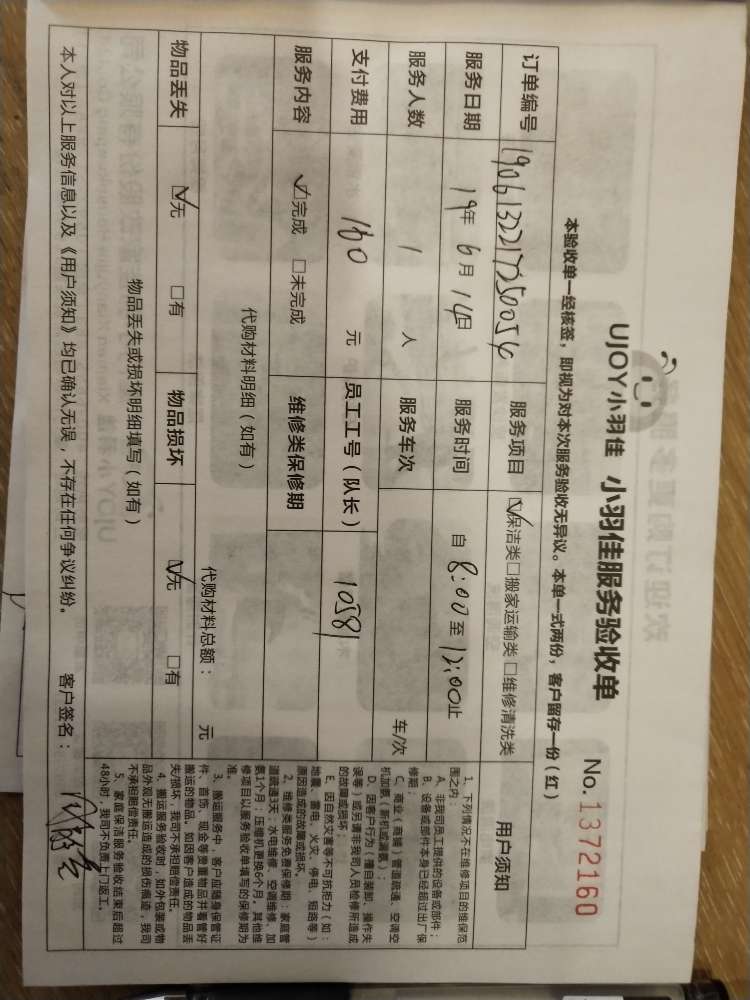 UJOY小羽佳 小羽佳服务验收单
No.1372160
本验收单一经核签，即视为对本次服务验收无异议。本单一式两份，客户留存一份（红）
订单编号 服务项目 ☑保洁类□搬家运输类□维修清洗类
服务日期 19年 6月 14日 服务时间 自 8:00 至 12:00止
服务人数 1 人 服务车次 车/次
支付费用 160 元 员工工号（队长） 10581
服务内容 ☑完成 □未完成 维修类保修期
代购材料明细（如有） 代购材料总额： 元
物品丢失 ☑无 □有 物品损坏 ☑无 □有
物品丢失或损坏明细填写（如有）
本人对以上服务信息以及《用户须知》均已确认无误，不存在任何争议纠纷。 客户签名：
用户须知
1、下列情况不在维修项目的维保范
围之内：
A、非我司员工提供的设备或部件；
B、设备或部件本身已经超过出厂保
修期；
C、商业（商铺）管道疏通、空调空
机加氨（新机或漏氨）；
D、因客户行为（擅自装卸、操作失
误等）或另请非我司人员检修所造成
的故障或损坏；
E、因自然灾害等不可抗拒力（如：
地震、雷电、火灾、停电、短路等）
原因造成的故障或损坏。
2、维修类服务免费保修期：家庭管
道疏通3天；水电维修、空调维修、加
氨1个月；压缩机更换6个月。其他维
修项目以服务验收单填写的保修期为
准。
3、搬运服务中，客户应随身保管证
件、首饰、现金等贵重物品并看管好
搬运的物品。如因客户造成的物品丢
失/损坏，我司不承担赔偿责任。
4、搬运服务验收时，如外包装或物
品外观无搬运造成的损伤痕迹，我司
不承担赔偿责任。
5、家庭保洁服务验收结束后超过
48小时，我司不负责上门返工。